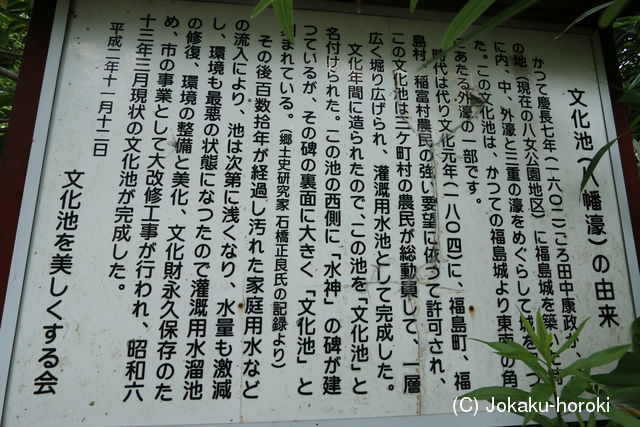 文化池(八幡濠)の由来
かつて慶長七年(一六〇二)ごろ田中康政が、こ
の地(現在の八女公園地区)に福島城を築い
に内、中、外濠と三重の濠をめぐらして城を
た。この文化池は、かつての福島城より東南の角
にあたる外濠の一部です。
時代は代り文化元年(一八〇四)に、福島町、福
島村、稲富村農民の強い要望に依って許可され、
この文化池は三ケ町村の農民が総動員して、一層
広く堀り広げられ、灌漑用水池として完成した。
文化年間に造られたので、この池を「文化池」と
名付けられた。この池の西側に「水神」の碑が建
つているが、その碑の裏面に大きく、「文化池」と
まれている。(郷土史研究家 石橋正良氏の記録より)
その後百数拾年が経過し汚れた家庭用水など
の流入により、池は次第に浅くなり、水量も激減
し、環境も最悪の状態になつたので灌漑用水溜池
の修復、環境の整備と美化、文化財永久保存のた
め、市の事業として大改修工事が行われ、昭和六
十三年三月現状の文化池が完成した。
平成二年十一月十二日
文化池を美しくする会
(C) Jokaku-horoki